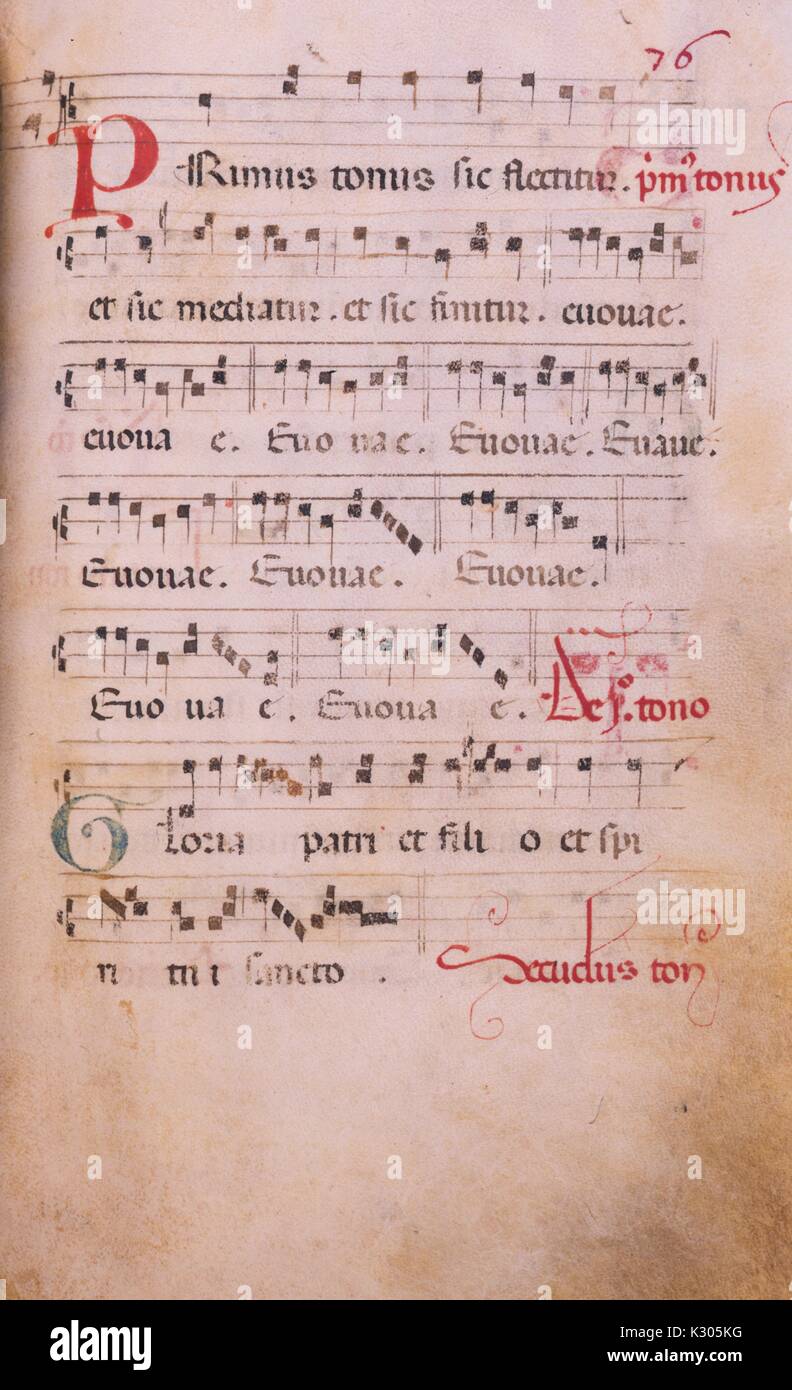 76
PRimus tonus sic flectitur. p̃m9 tonus
et sic mediatur. et sic finitur. euouae.
euoua e. Euo uae. Euouae. Euaue.
Euouae. Euouae. Euouae.
Euo ua e. Euoua e. De p.º tono
Gloria patri et fili o et spi
ri tui sancto. Secundus ton9
alamy
Image ID: K305KG
www.alamy.com